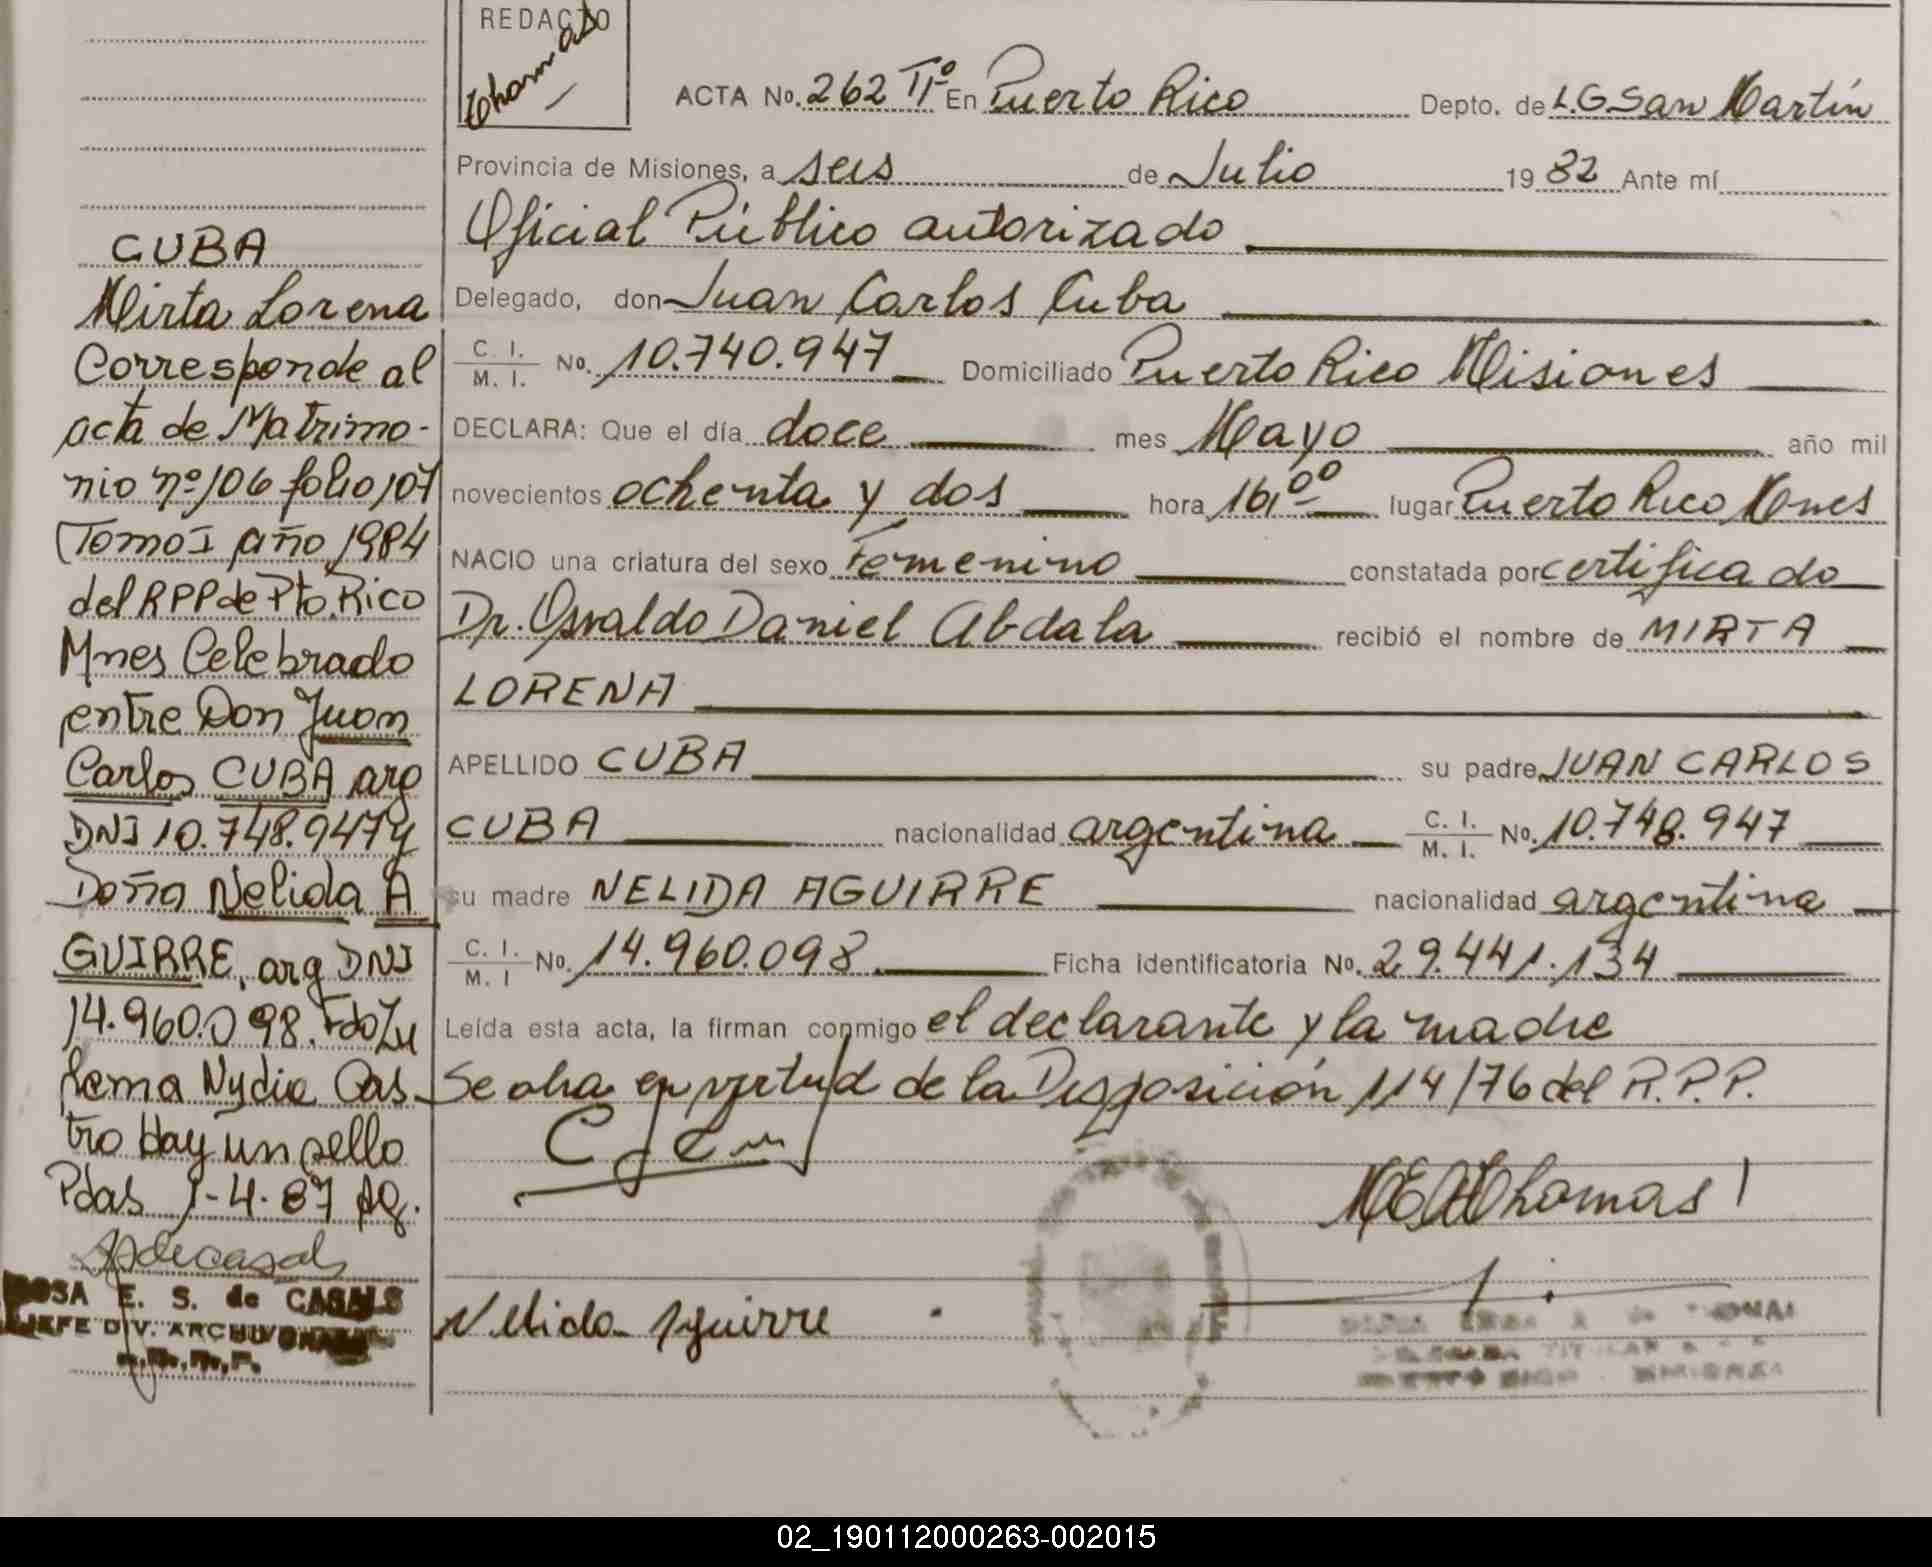 REDACTO
Thomas
ACTA No. 262 IIº En Puerto Rico Depto. de L.G. San Martín
Provincia de Misiones, a seis de Julio 1982 Ante mí
Oficial Público autorizado
Delegado, don Juan Carlos Cuba
C. I. M. I. No. 10.740.947 Domiciliado Puerto Rico Misiones
DECLARA: Que el día doce mes Mayo año mil
novecientos ochenta y dos hora 16,00 lugar Puerto Rico Mnes
NACIO una criatura del sexo Femenino constatada por certificado
Dr. Osvaldo Daniel Abdala recibió el nombre de MIRTA
LORENA
APELLIDO CUBA su padre JUAN CARLOS
CUBA nacionalidad argentina C. I. M. I. No. 10.748.947
su madre NELIDA AGUIRRE nacionalidad argentina
C. I. M. I No. 14.960.098 Ficha identificatoria No. 29.441.134
Leída esta acta, la firman conmigo el declarante y la madre
Se aha en virtud de la Disposición 114/76 del R.P.P.
Thomas
Nelida Aguirre
CUBA
Mirta Lorena
Corresponde al
acta de Matrimo-
nio nº 106 folio 107
Tomo I año 1984
del RPP de Pto. Rico
Mnes Celebrado
entre Don Juan
Carlos CUBA arg
DNI 10.748.947 y
Doña Nelida A
GUIRRE, arg DNI
14.960.098. Fdo Zu
lema Nydia Cas
tro Hay un sello
Pdas 1-4-87
ROSA E. S. de CASALS
JEFE DIV. ARCHIVO
02_190112000263-002015